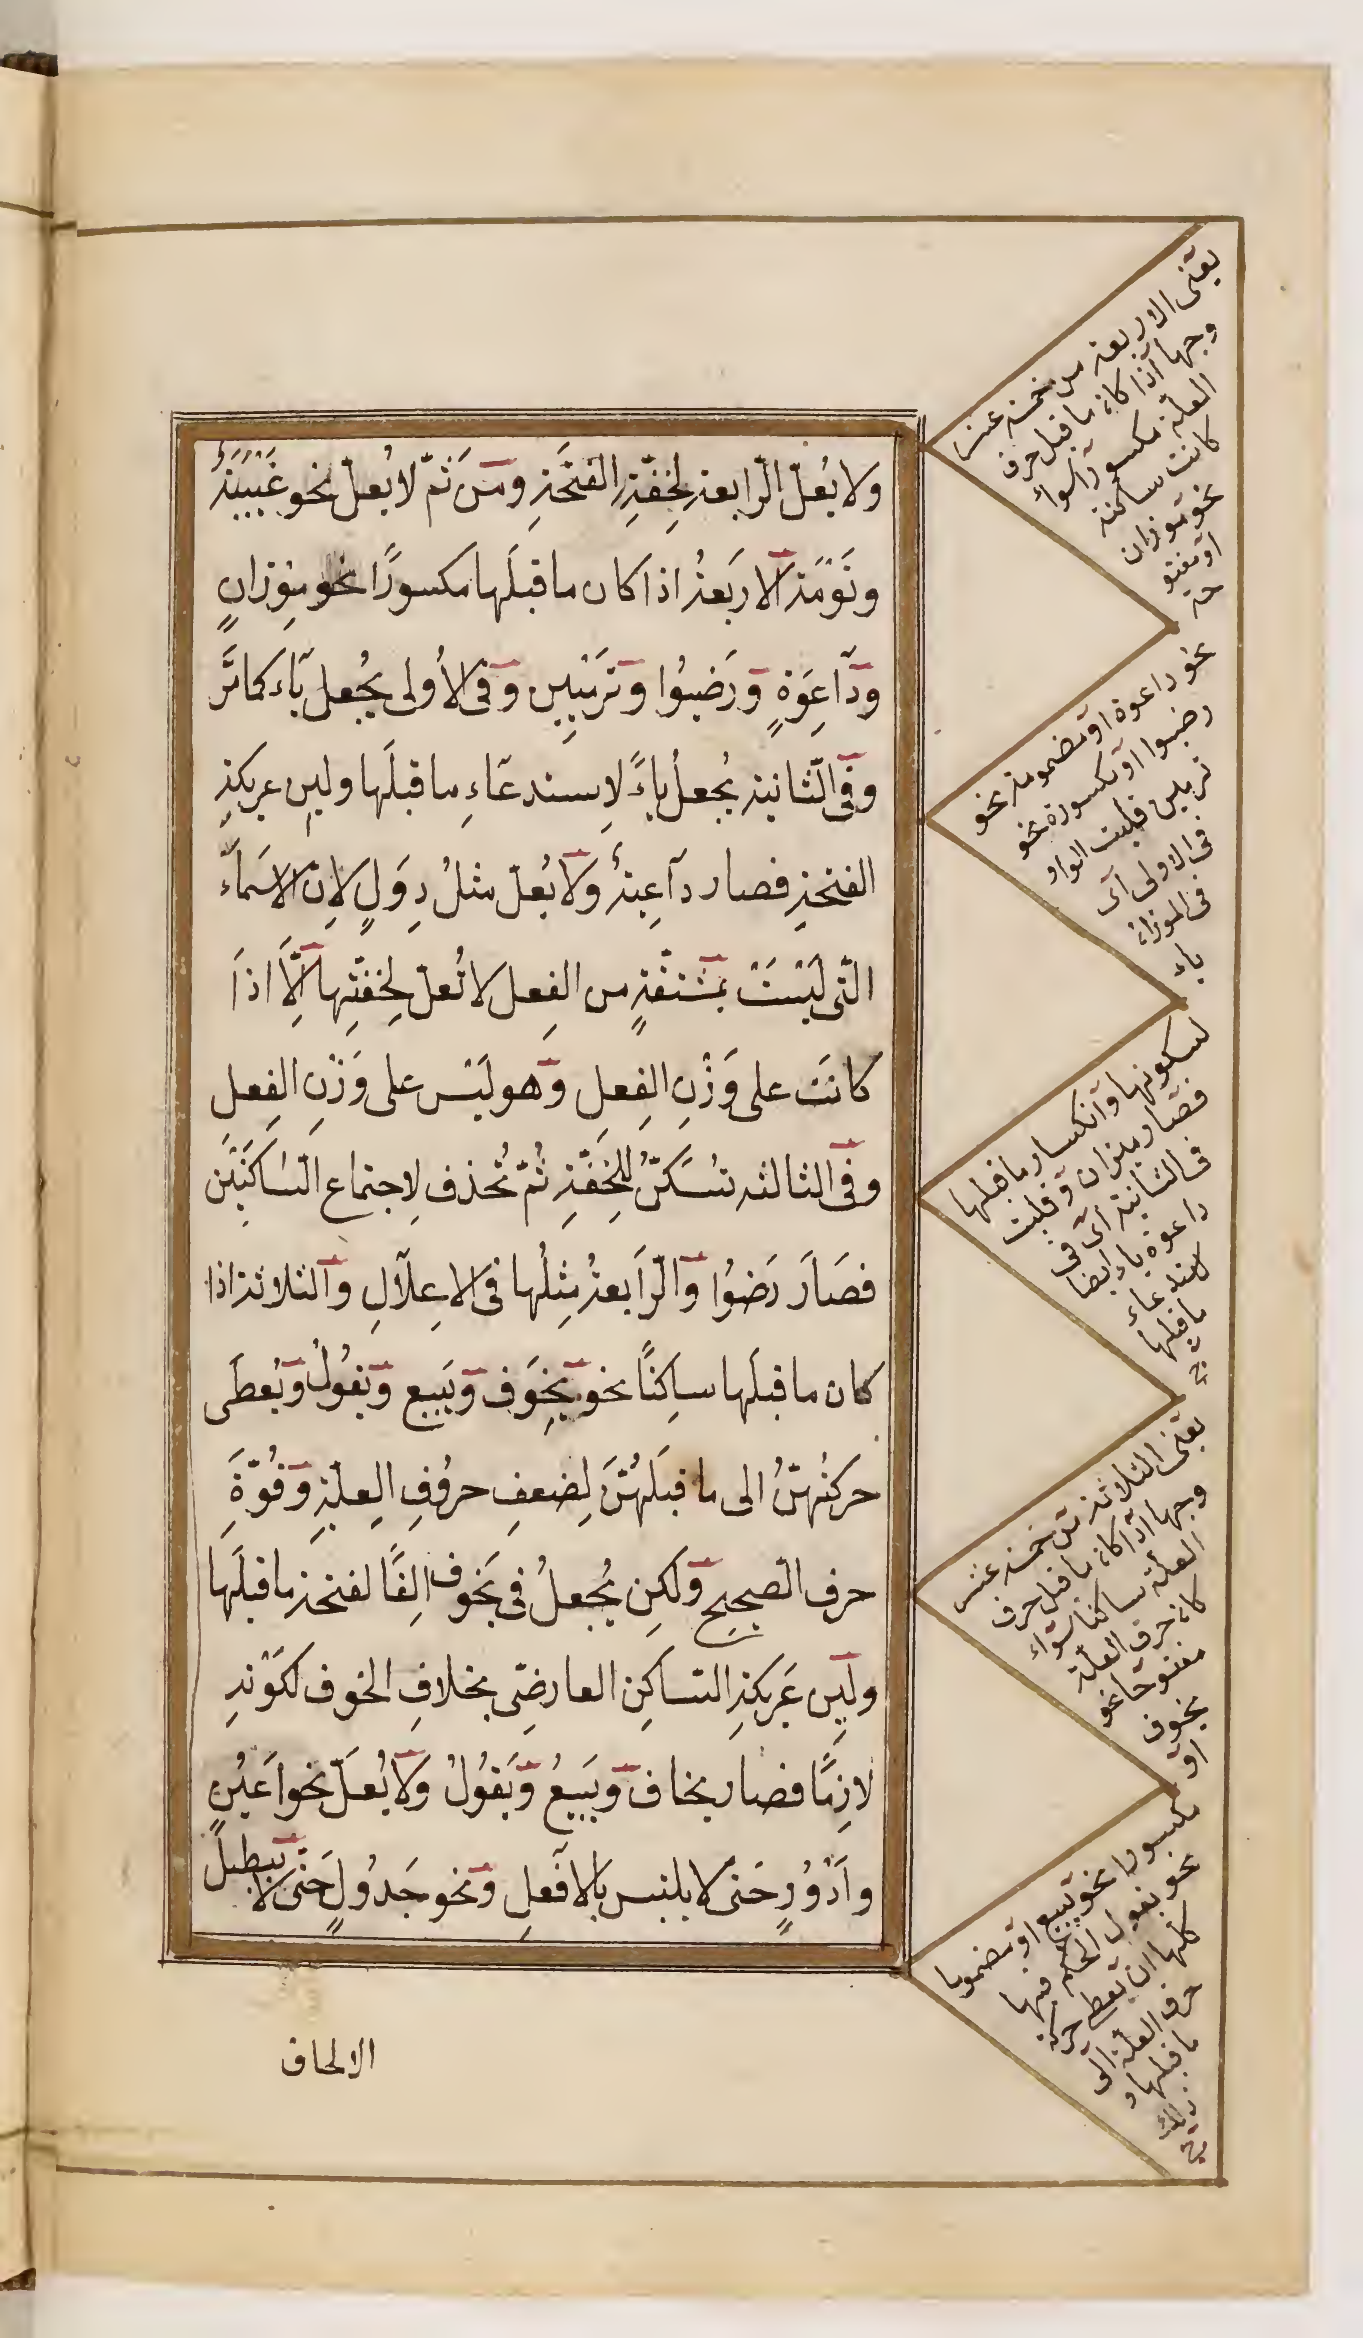 ولا يُعلّ الرابعة لِخِفّةِ الفَتْحَةِ ومَن ثمّ لا يُعلّ نحو غَيَبَةٌ
ونَوَمَة الاربَعةُ اذا كان ما قبلَها مكسورًا نحو مِوْزانٍ
ودَاعِوَةٍ ورَضِيُوا وتَرْمِيِين وفى الأولى يُجعل يآءً كما مَرَّ
وفى الثانية يُجعلُ ياءً لِاستدعَاءِ ما قبلَها ولِين عريكةِ
الفتحةِ فصار دآعِيةٌ ولا يُعلّ مثلُ دِوَلٍ لِانّ الاسمآء
الّتى لَيْسَتْ بمشتقّةٍ من الفِعل لا تُعلّ لِخفّتِها اِلَّا اذا
كانَت على وَزْنِ الفِعلِ وهو لَيْس على وَزْنِ الفِعل
وفى الثالثه تُسَكَّنُ لِلخِفّةِ ثُمّ تُحذف لِاجتماع السّاكنَيْن
فصَارَ رَضُوا والرّابعةُ مِثلُها فى الاِعلَالِ والثلاثة اذا
كان ما قبلَها ساكِنًا نحو يَخْوَف ويَبْيِع ويَقْوُلُ ويُعطَى
حركتُهنّ الى ما قبلَهُنّ لِضعفِ حروُفِ العِلّةِ وقُوّةِ
حرف الصّحيح ولكِن يُجعلُ فى يَخَوف اَلِفًا لفتحة ما قبلَها
ولِين عَريكةِ السّاكِن العارضِى بخلافِ الخوف لكَوْنه
لازِمًا فصار يخاف ويَبيعُ ويَقُولُ ولا يُعلّ نحو اَعْيُنٍ
واَدْوُرٍ حَتى لا يلتبس بالافعلِ ونحو جَدْوُلٍ حَتّى لا يبطل
الالحاق
يعنى الاربعة من خمسة عشر
وجها اذا كان ما قبل حرف
العلّة مكسورا سواء
كانت ساكنة
نحو موزان
او مفتو
حة
نحو داعوة او مضمومة نحو
رضيوا او مكسورة نحو
ترميين قلبت الواو
فى الاولى اى
فى الموزان
ياء
لسكونها وانكسار ما قبلها
فصار ميزان وقلبت
فى الثانية اى فى
داعوة ياء ايضا
لاستدعاء
ما قبلها
يعنى الثلاثة من خمسة عشر
وجها اذا كان ما قبل حرف
العلّة ساكنا سواء
كان حرف العلّة
مفتوحا نحو
يخوف
او
مكسورا نحو يبيع او مضموما
نحو يقول الحكم فيها
كلها ان يعطى حركة
حرف العلّة الى
ما قبلها و
ذلك